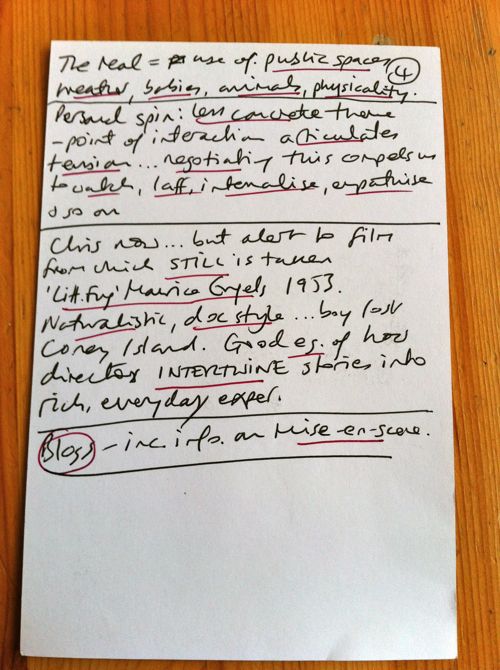 The real = use of public spaces, 4
weather, babies, animals, physicality.
Personal spin: less concrete theme
- point of interaction articulates
tension... negotiating this compels us
to watch, laff, internalise, empathise
& so on
Clips now... but alert to film
from which STILL is taken
'Litt. Fug' Maurice Engels 1953.
Naturalistic, doc style... boy lost
Coney Island. Good eg. of how
director INTERTWINE stories into
rich, everyday exper.
Blogs - inc. info. on Mise-en-scene.